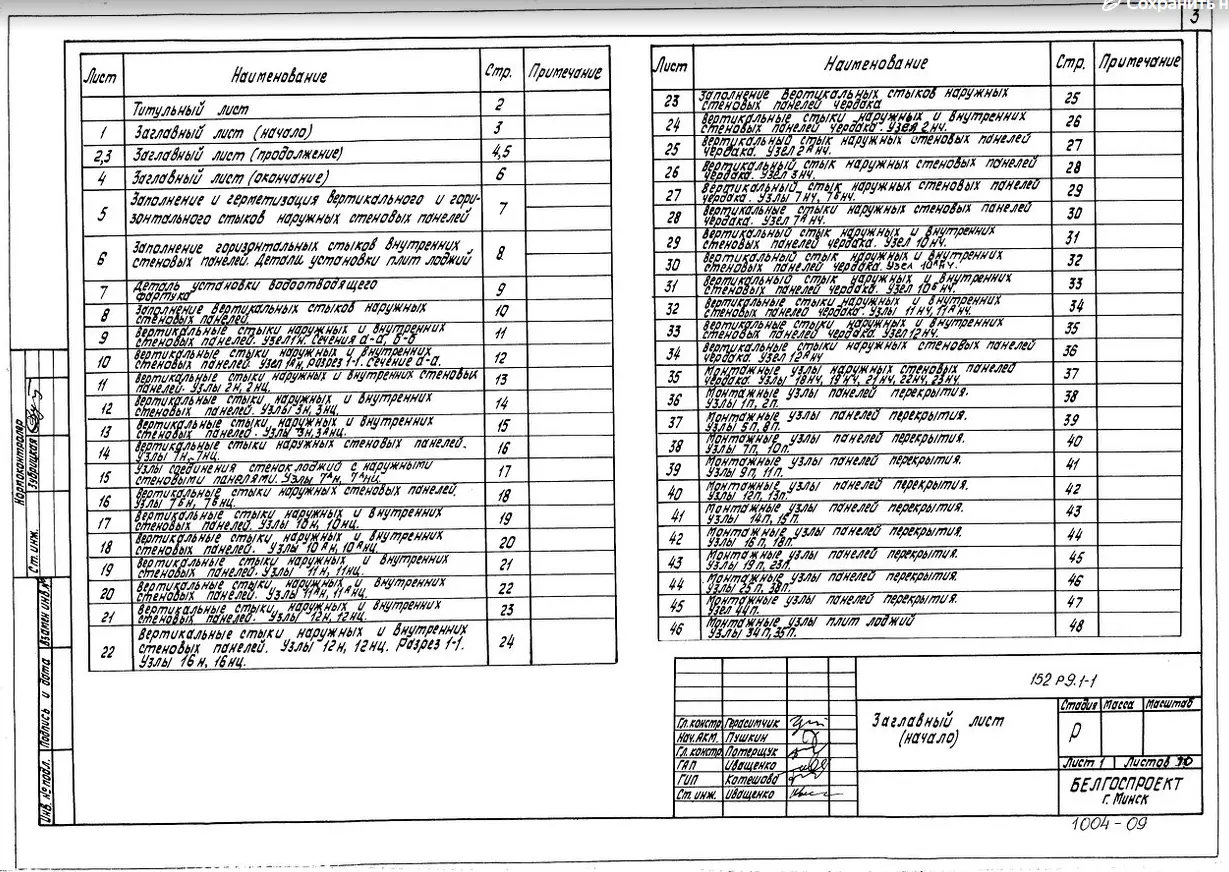 Сохранить н
3
Лист Наименование Стр. Примечание
Титульный лист 2
1 Заглавный лист (начало) 3
2,3 Заглавный лист (продолжение) 4,5
4 Заглавный лист (окончание) 6
5 Заполнение и герметизация вертикального и гори- 7
зонтального стыков наружных стеновых панелей
6 Заполнение горизонтальных стыков внутренних 8
стеновых панелей. Детали установки плит лоджий
7 Деталь установки водоотводящего 9
фартука
8 Заполнение вертикальных стыков наружных 10
стеновых панелей
9 Вертикальные стыки наружных и внутренних 11
стеновых панелей. Узел 1н. Сечения а-а, б-б
10 Вертикальные стыки наружных и внутренних 12
стеновых панелей. Узел 1ᴬн, разрез 1-1. Сечение а-а.
11 Вертикальные стыки наружных и внутренних стеновых 13
панелей. Узлы 2н, 2нц.
12 Вертикальные стыки наружных и внутренних 14
стеновых панелей. Узлы 3н, 3нц.
13 Вертикальные стыки наружных и внутренних 15
стеновых панелей. Узлы 3ᴬнц.
14 Вертикальные стыки наружных стеновых панелей. 16
Узлы 7н, 7нц.
15 Узлы соединения стенок лоджий с наружными 17
стеновыми панелями. Узлы 7ᴬн, 7ᴬнц.
16 Вертикальные стыки наружных стеновых панелей. 18
Узлы 7ᵟн, 7ᵟнц.
17 Вертикальные стыки наружных и внутренних 19
стеновых панелей. Узлы 10н, 10нц.
18 Вертикальные стыки наружных и внутренних 20
стеновых панелей. Узлы 10ᴬн, 10ᴬнц.
19 Вертикальные стыки наружных и внутренних 21
стеновых панелей. Узлы 11н, 11нц.
20 Вертикальные стыки наружных и внутренних 22
стеновых панелей. Узлы 11ᴬн, 11ᴬнц.
21 Вертикальные стыки наружных и внутренних 23
стеновых панелей. Узлы 12н, 12нц.
22 Вертикальные стыки наружных и внутренних 24
стеновых панелей. Узлы 12н, 12нц. Разрез 1-1.
Узлы 16н, 16нц.
Лист Наименование Стр. Примечание
23 Заполнение вертикальных стыков наружных 25
стеновых панелей чердака
24 Вертикальные стыки наружных и внутренних 26
стеновых панелей чердака. Узел 2нч.
25 Вертикальный стык наружных стеновых панелей 27
чердака. Узел 2ᴬнч.
26 Вертикальный стык наружных стеновых панелей 28
чердака. Узел 3нч.
27 Вертикальный стык наружных стеновых панелей 29
чердака. Узлы 7нч, 7ᵟнч.
28 Вертикальные стыки наружных стеновых панелей 30
чердака. Узел 7ᴬнч.
29 Вертикальный стык наружных и внутренних 31
стеновых панелей чердака. Узел 10нч.
30 Вертикальный стык наружных и внутренних 32
стеновых панелей чердака. Узел 10ᴬнч.
31 Вертикальный стык наружных и внутренних 33
стеновых панелей чердака. Узел 10ᵟнч.
32 Вертикальные стыки наружных и внутренних 34
стеновых панелей чердака. Узлы 11нч, 11ᴬнч.
33 Вертикальные стыки наружных и внутренних 35
стеновых панелей чердака. Узел 12нч.
34 Вертикальные стыки наружных стеновых панелей 36
чердака. Узел 12ᴬнч
35 Монтажные узлы наружных стеновых панелей 37
чердака. Узлы 18нч, 19нч, 21нч, 22нч, 23нч
36 Монтажные узлы панелей перекрытия. 38
Узлы 1п, 2п.
37 Монтажные узлы панелей перекрытия. 39
Узлы 5п, 8п.
38 Монтажные узлы панелей перекрытия. 40
Узлы 7п, 10п.
39 Монтажные узлы панелей перекрытия. 41
Узлы 9п, 11п.
40 Монтажные узлы панелей перекрытия. 42
Узлы 12п, 13п.
41 Монтажные узлы панелей перекрытия. 43
Узлы 14п, 15п.
42 Монтажные узлы панелей перекрытия. 44
Узлы 16п, 18п.
43 Монтажные узлы панелей перекрытия. 45
Узлы 19п, 23п.
44 Монтажные узлы панелей перекрытия. 46
Узлы 25п, 38п.
45 Монтажные узлы панелей перекрытия. 47
Узел 44п.
46 Монтажные узлы плит лоджий 48
Узлы 34п, 35п.
Нормоконтролер
Зубрицкая
Ст. инж.
Взамен инв.№
Подпись и дата
Инв. № подл.
152 Р9.1-1
Гл.констр. Герасимчик
Нач.АКМ. Пушкин
Гл.констр. Потерщук
ГАП Иващенко
ГИП Котешова
Ст.инж. Иващенко
Заглавный лист
(начало)
Стадия Масса Масштаб
Р
Лист 1 Листов
БЕЛГОСПРОЕКТ
г. Минск
1004-09